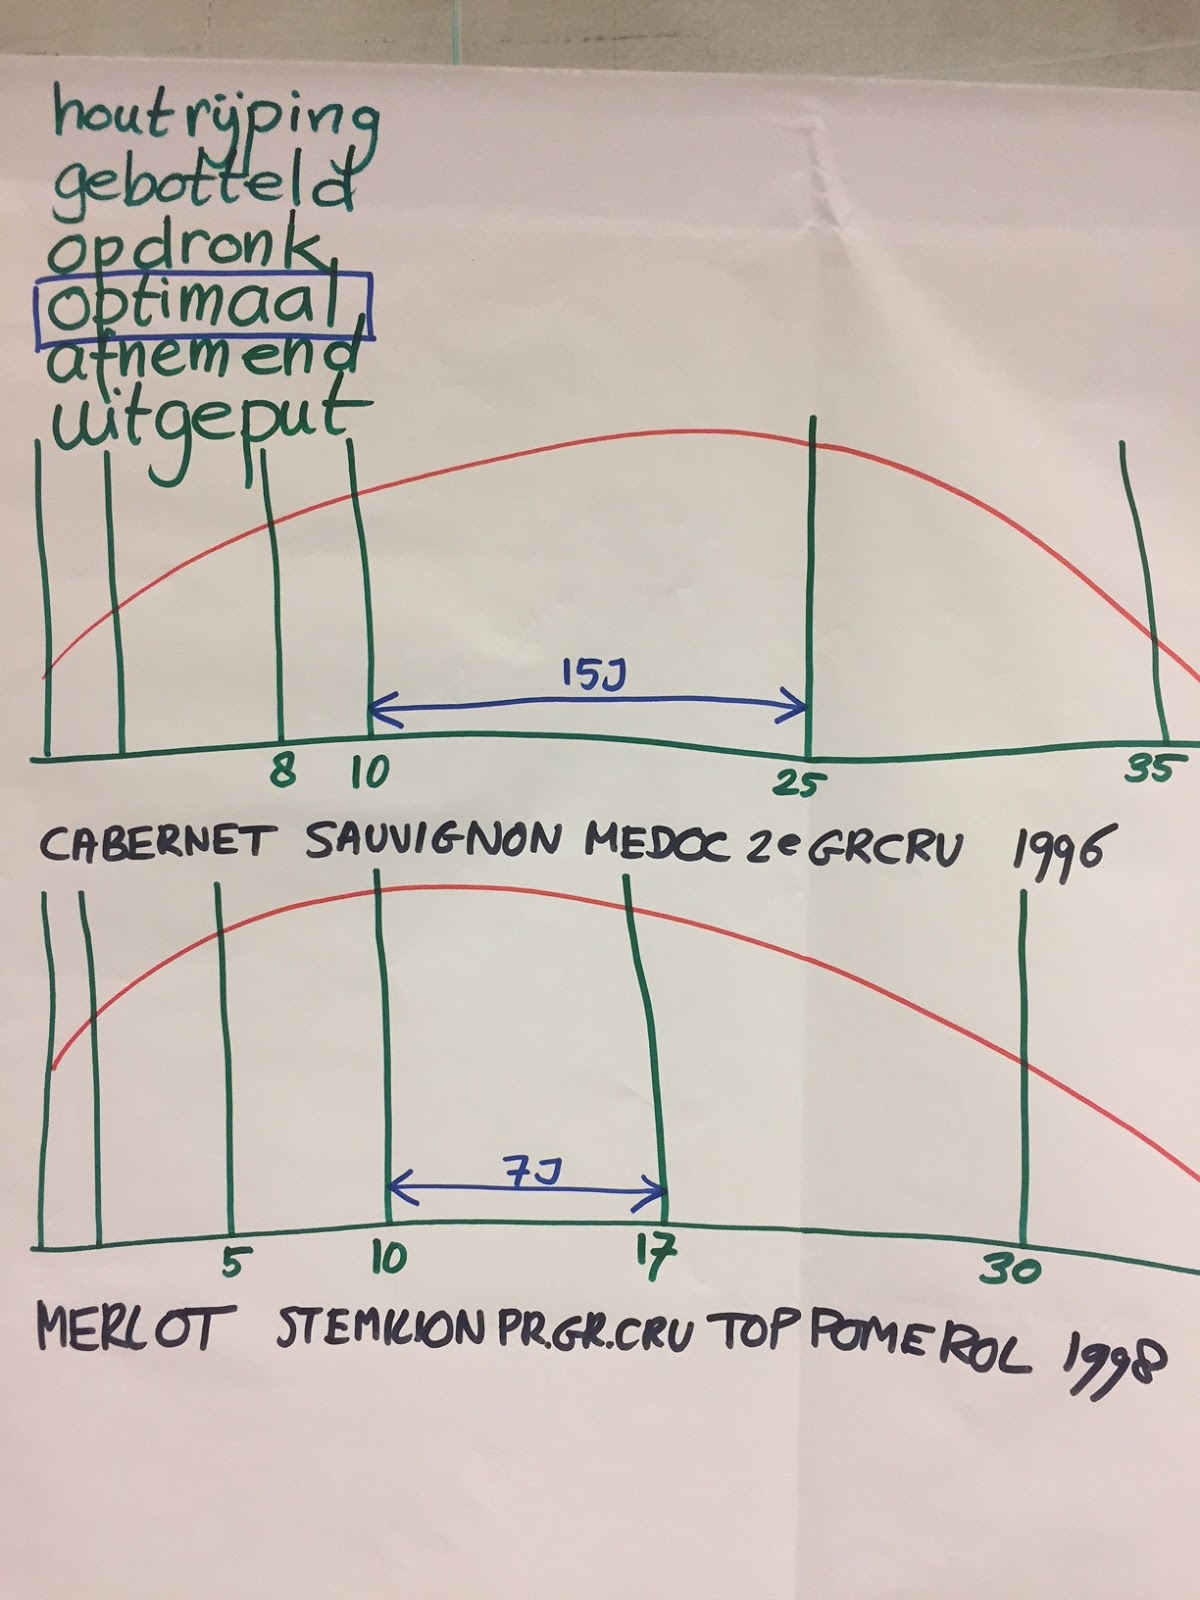 houtrijping
gebotteld
opdronk
optimaal
afnemend
uitgeput
15J
8 10 25 35
CABERNET SAUVIGNON MEDOC 2e GRCRU 1996
7J
5 10 17 30
MERLOT STEMILION PR.GR.CRU TOP POMEROL 1998